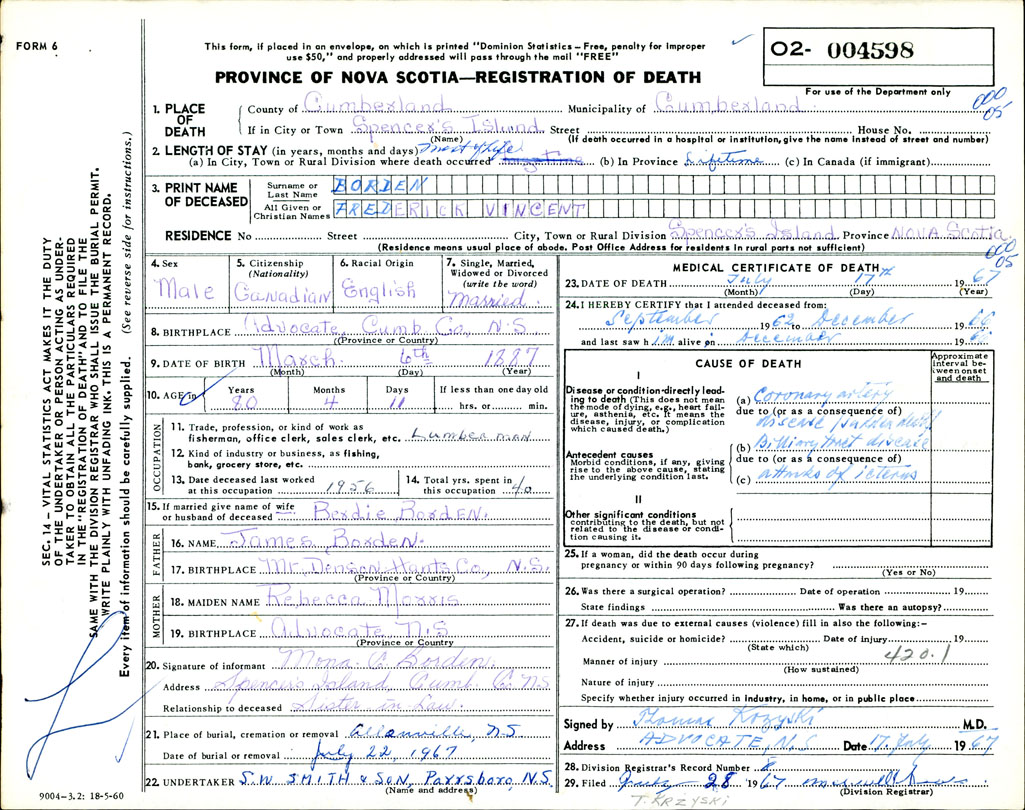 FORM 6
This form, if placed in an envelope, on which is printed "Dominion Statistics – Free, penalty for improper
use $50," and properly addressed will pass through the mail "FREE"
PROVINCE OF NOVA SCOTIA—REGISTRATION OF DEATH
O2- 004598
For use of the Department only
000
05
1. PLACE OF DEATH
County of Cumberland Municipality of Cumberland
If in City or Town Spencer's Island Street House No.
(Name) (If death occurred in a hospital or institution, give the name instead of street and number)
2. LENGTH OF STAY (in years, months and days) most of life
(a) In City, Town or Rural Division where death occurred (b) In Province Lifetime (c) In Canada (if immigrant)
3. PRINT NAME OF DECEASED
Surname or Last Name BORDEN
All Given or Christian Names FREDERICK VINCENT
RESIDENCE No Street City, Town or Rural Division Spencer's Island Province NOVA Scotia
(Residence means usual place of abode. Post Office Address for residents in rural parts not sufficient)
000
05
4. Sex
Male
5. Citizenship
(Nationality)
Canadian
6. Racial Origin
English
7. Single, Married,
Widowed or Divorced
(write the word)
Married
8. BIRTHPLACE Advocate, Cumb. Co., N.S.
(Province or Country)
9. DATE OF BIRTH March 6th 1887
(Month) (Day) (Year)
10. AGE in
Years Months Days If less than one day old
80 4 11 hrs. or min.
OCCUPATION
11. Trade, profession, or kind of work as
fisherman, office clerk, sales clerk, etc. Lumberman
12. Kind of industry or business, as fishing,
bank, grocery store, etc.
13. Date deceased last worked
at this occupation 1956
14. Total yrs. spent in
this occupation 40
15. If married give name of wife
or husband of deceased Berdie Borden.
FATHER
16. NAME James Borden.
17. BIRTHPLACE Mt. Denson Hants Co., N.S.
(Province or Country)
MOTHER
18. MAIDEN NAME Rebecca Morris
19. BIRTHPLACE Advocate N.S
(Province or Country)
20. Signature of informant Mona C. Borden.
Address Spencer's Island, Cumb. C. N.S
Relationship to deceased Sister in Law.
21. Place of burial, cremation or removal Allanville, N.S
Date of burial or removal July 22, 1967
22. UNDERTAKER S.W. SMITH & SON, Parrsboro, N.S.
(Name and address)
9004-3.2: 18-5-60
MEDICAL CERTIFICATE OF DEATH
23. DATE OF DEATH July 17th 1967
(Month) (Day) (Year)
24. I HEREBY CERTIFY that I attended deceased from:
September 1962 to December 1966
and last saw him alive on December 1966
CAUSE OF DEATH
Approximate
interval between
onset
and death
I
Disease or condition directly leading
to death (This does not mean
the mode of dying, e.g., heart failure,
asthenia, etc. It means the
disease, injury, or complication
which caused death.)
(a) Coronary artery
due to (or as a consequence of)
disease (sudden death)
Antecedent causes
Morbid conditions, if any, giving
rise to the above cause, stating
the underlying condition last.
(b) Billiary tract disease
due to (or as a consequence of)
(c) attacks of icterus
II
Other significant conditions
contributing to the death, but not
related to the disease or condition
causing it.
25. If a woman, did the death occur during
pregnancy or within 90 days following pregnancy?
(Yes or No)
26. Was there a surgical operation? Date of operation 19
State findings Was there an autopsy?
27. If death was due to external causes (violence) fill in also the following:-
Accident, suicide or homicide? Date of injury 19
(State which)
420.1
Manner of injury
(How sustained)
Nature of injury
Specify whether injury occurred in industry, in home, or in public place
Signed by Thomas Krzyski M.D.
Address ADVOCATE, N.S. Date 17. July 1967
28. Division Registrar's Record Number 8
29. Filed July 28 1967
(Division Registrar)
T. KRZYSKI
SEC. 14 – VITAL STATISTICS ACT MAKES IT THE DUTY
OF THE UNDERTAKER OR PERSON ACTING AS UNDER-
TAKER TO OBTAIN ALL THE PARTICULARS REQUIRED
IN THE "REGISTRATION OF DEATH" AND TO FILE THE
SAME WITH THE DIVISION REGISTRAR WHO SHALL ISSUE THE BURIAL PERMIT.
WRITE PLAINLY WITH UNFADING INK. THIS IS A PERMANENT RECORD.
Every item of information should be carefully supplied. (See reverse side for instructions.)